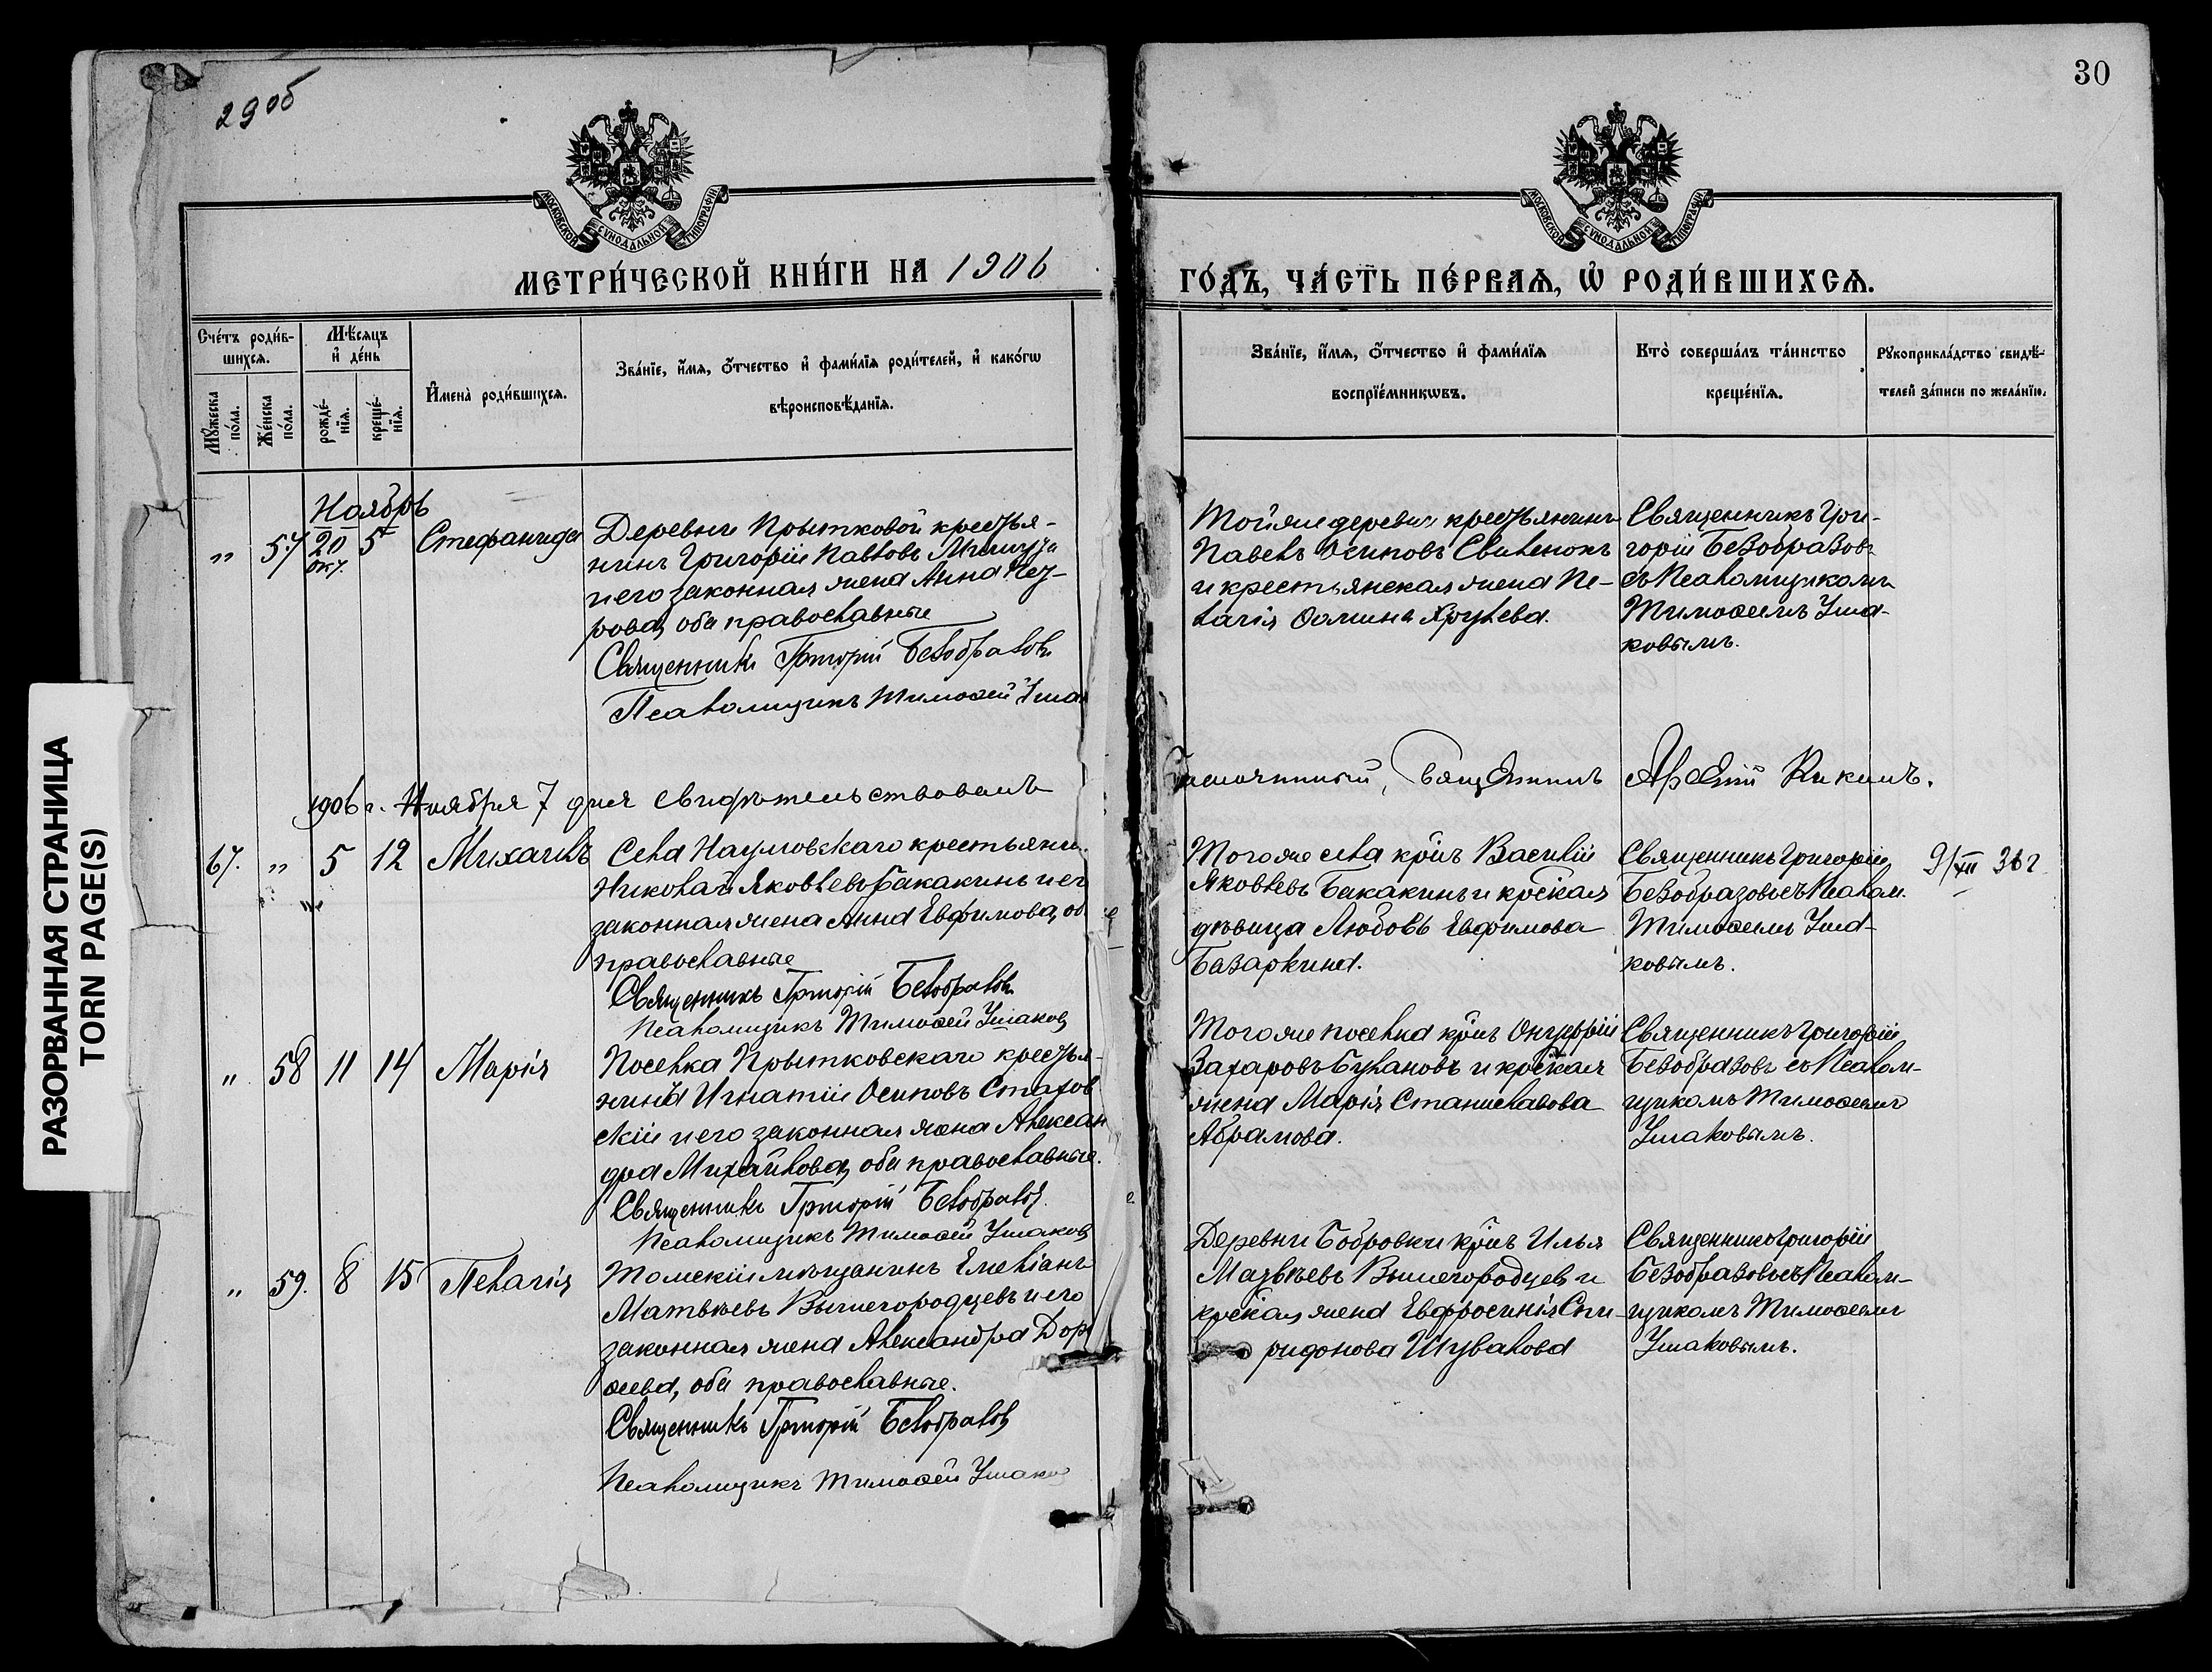 29об
30
МОСКОВСКОЙ СУНОДАЛЬНОЙ ТИПОГРАФІИ
МОСКОВСКОЙ СУНОДАЛЬНОЙ ТИПОГРАФІИ
МЕТРИ́ЧЕСКОЙ КНИ́ГИ НА 1906
ГО́ДЪ, ЧА́СТЬ ПЕ́РВАѦ, Ѡ҆ РОДИ́ВШИХСѦ.
Сче́тъ роди́в-
шихсѧ.
Мꙋ́жеска по́ла.
Же́нска по́ла.
Мѣ́сѧцъ
и҆ де́нь
рожде́-
нїѧ.
креще́-
нїѧ.
И҆мена̀ роди́вшихсѧ.
Зва́нїе, и҆́мѧ, ѻ҆́тчество и҆ фами́лїѧ роди́телей, и҆ како́гѡ
вѣроисповѣ́данїѧ.
Зва́нїе, и҆́мѧ, ѻ҆́тчество и҆ фами́лїѧ
воспрїе́мникѡвъ.
Кто̀ соверша́лъ та́инство
креще́нїѧ.
Рꙋкоприкла́дство свидѣ́-
телей за́писи по жела́нїю.
Ноябрь
" 57 20 окт. 5 Стефанида
Деревни Прытковой крестья-
нинъ Григорій Павловъ
и его законная жена Анна Пет-
рова, оба православные
Священникъ Григорій Безобразовъ
Псаломщикъ Тимоѳей
Тойже деревни крестьянинъ
Павелъ Осиповъ Свиленокъ
и крестьянская жена Пе-
лагія Ѳомина Хрулева.
Священникъ Гри-
горій Безобразовъ
съ Псаломщикомъ
Тимоѳеемъ Уша-
ковымъ.
1906 г. Ноября 7 дня свидѣтельствовалъ
Благочинный, Священникъ Арсеній Кикинъ.
67. " 5 12 Михаилъ
Села Наумовскаго крестьяни.
Николай Яковлевъ Бакакинъ и ег
законная жена Анна Евфимова, об
православные
Священникъ Григорій Безобразовъ
Псаломщикъ Тимоѳей Ушаковъ
Тогоже села кр̃нъ Василій
Яковлевъ Бакакинъ и кр̃ская
дѣвица Любовь Евфимова
Базаркина.
Священникъ Григорій
Безобразовъ съ Псалом.
Тимоѳеемъ Уша-
ковымъ.
9/XII 36 г
" 58 11 14 Марія
Поселка Прытковскаго крестья-
нина Игнатій Осиповъ Стахов
скій и его законная жена Алексан
дра Михайлова, оба православные.
Священникъ Григорій Безобразовъ.
Псаломщикъ Тимоѳей Ушаковъ
Тогоже поселка кр̃нъ Онуфрій
Захаровъ Булановъ и кр̃ская
жена Марія Станиславова
Абрамова.
Священникъ Григорій
Безобразовъ съ Псалом-
щикомъ Тимоѳеемъ
Ушаковымъ.
" 59. 8 15 Пелагія
Томскій мѣщанинъ Емеліанъ
Матвѣевъ Вышегородцевъ и его
законная жена Александра Доро
ѳеева, оба православные.
Священникъ Григорій Безобразовъ
Псаломщикъ Тимоѳей Ушаков
Деревни Бобровки кр̃нъ Илья
Матвѣевъ Вышегородцевъ и
кр̃ская жена Евфросинія Спи-
ридонова Шувалова
Священникъ Григорій
Безобразовъ съ Псалом-
щикомъ Тимоѳеемъ
Ушаковымъ.
РАЗОРВАННАЯ СТРАНИЦА
TORN PAGE(S)